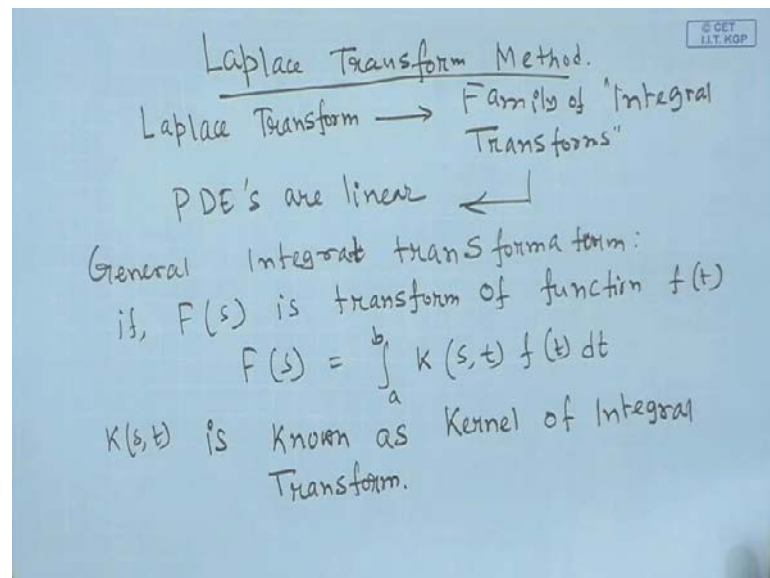 © CET
I.I.T. KGP
Laplace Transform Method.
Laplace Transform → Family of "Integral
Transforms"
PDE's are linear ←
General Integral transforma form:
if, F(s) is transform of function f(t)
F(s) = ∫ₐᵇ K(s,t) f(t) dt
K(s,t) is Known as Kernel of Integral
Transform.